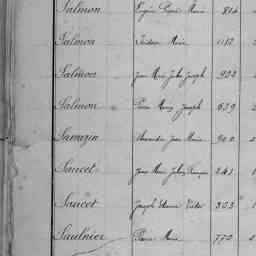 Salmon Eugène Pierre Marie 814
Salmon Isidore Marie 1112
Salmon Jean Marie Jules Joseph 922
Salmon Pierre Marie Joseph 639
Samazin Alexandre Jean Marie 900
Saucet Jean Marie Julien François 241
Saucet Joseph Etienne Victor 303
Saulnier Pierre Marie 770